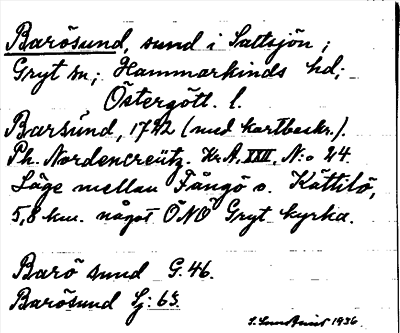 Barösund, sund i Saltsjön;
Gryt sn; Hammarkinds hd;
Östergötl. l.
Barsund, 1742 (med kartbeskr.).
Ph. Nordencreütz. Kr. A. XXII, N:o 24.
Läge mellan Fångö o. Kättilö,
5,8 km. något ÖNÖ Gryt kyrka.
Barö sund G. 46.
Barösund Sj: 63.
1936